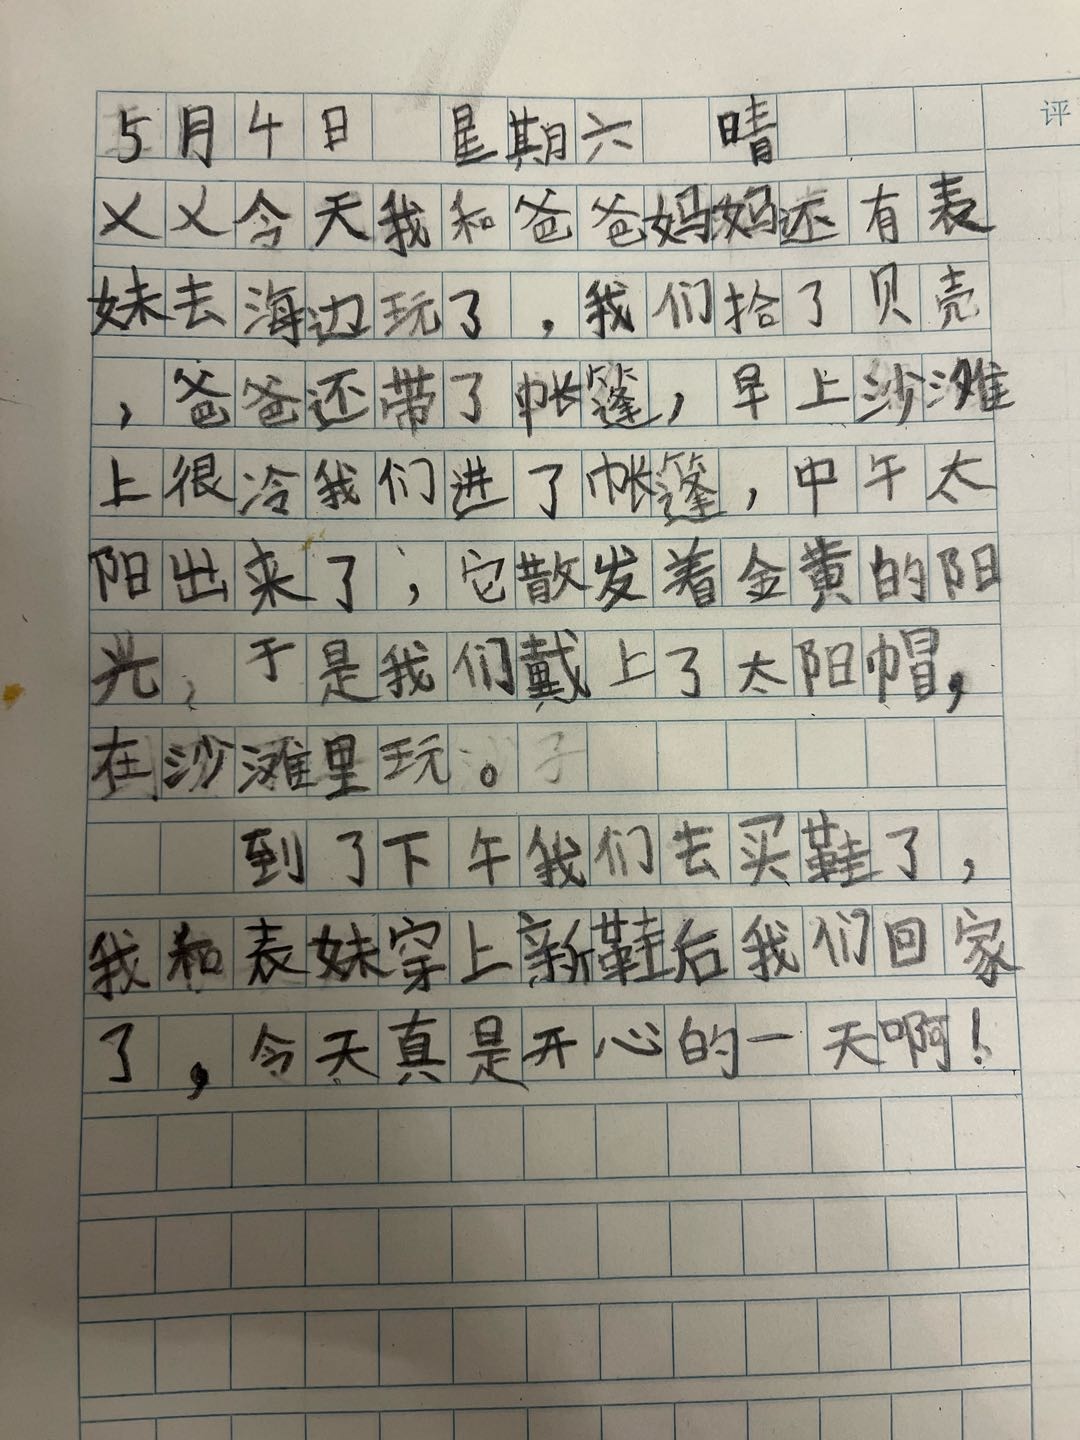 5月4日 星期六 晴 评
乂乂今天我和爸爸妈妈还有表
妹去海边玩了，我们拾了贝壳
，爸爸还带了帐篷，早上沙滩
上很冷我们进了帐篷，中午太
阳出来了，它散发着金黄的阳
光，于是我们戴上了太阳帽，
在沙滩里玩。子
到了下午我们去买鞋了，
我和表妹穿上新鞋后我们回家
了，今天真是开心的一天啊！